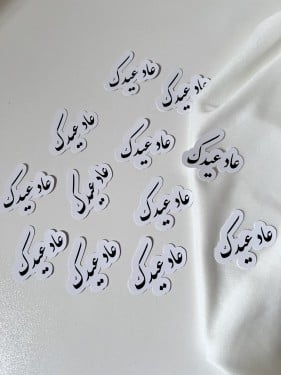 عاد عيدك
عاد عيدك
عاد عيدك
عاد عيدك
عاد عيدك
عاد عيدك
عاد عيدك
عاد عيدك
عاد عيدك
عاد عيدك
عاد عيدك
عاد عيدك